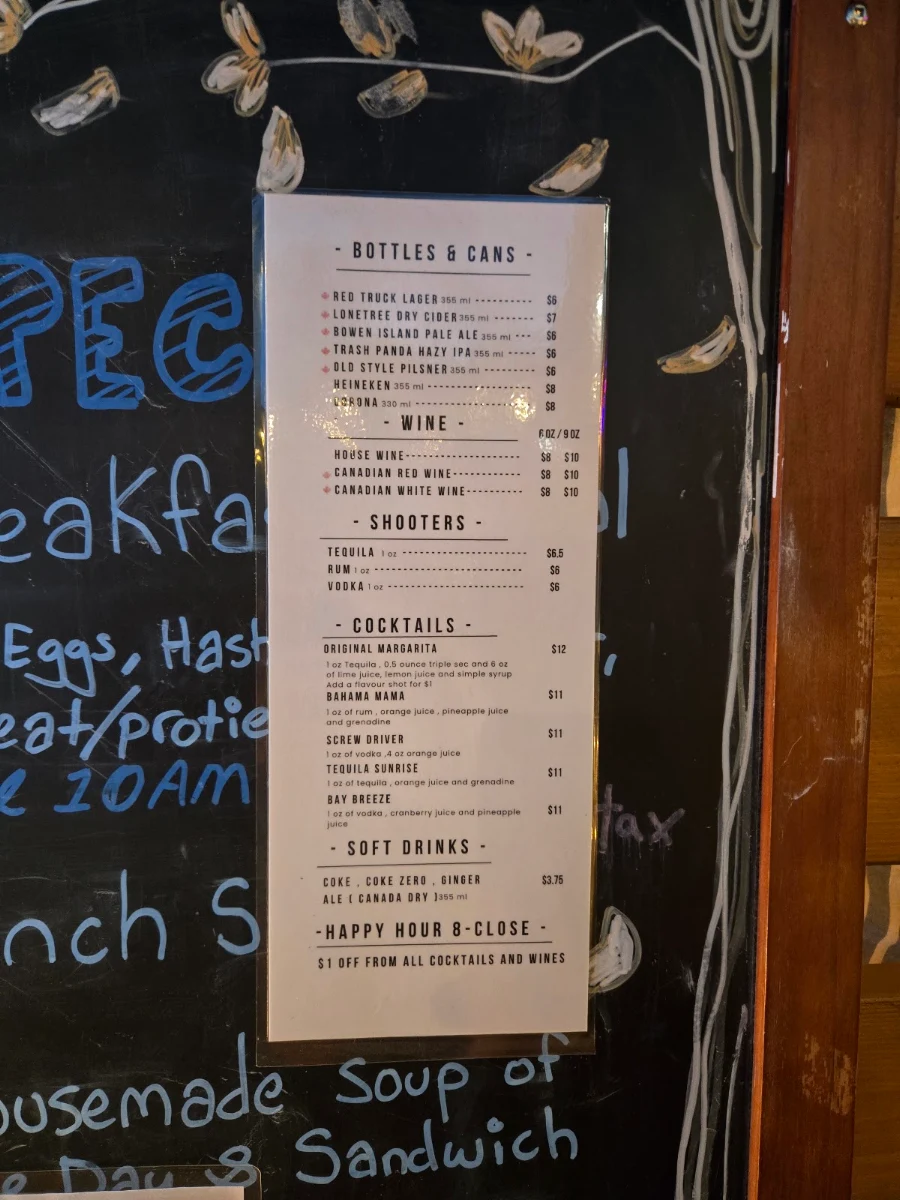 - BOTTLES & CANS -
RED TRUCK LAGER 355 ml ---------- $6
LONETREE DRY CIDER 355 ml ------- $7
BOWEN ISLAND PALE ALE 355 ml --- $6
TRASH PANDA HAZY IPA 355 ml ----- $6
OLD STYLE PILSNER 355 ml --------- $6
HEINEKEN 355 ml ------------------ $8
CORONA 330 ml -------------------- $8
- WINE -
6 OZ / 9 OZ
HOUSE WINE---------------------- $8 $10
CANADIAN RED WINE-------------- $8 $10
CANADIAN WHITE WINE----------- $8 $10
- SHOOTERS -
TEQUILA 1 oz ---------------------- $6.5
RUM 1 oz -------------------------- $6
VODKA 1 oz ------------------------ $6
- COCKTAILS -
ORIGINAL MARGARITA $12
1 oz Tequila , 0.5 ounce triple sec and 6 oz
of lime juice, lemon juice and simple syrup
Add a flavour shot for $1
BAHAMA MAMA $11
1 oz of rum , orange juice , pineapple juice
and grenadine
SCREW DRIVER $11
1 oz of vodka ,4 oz orange juice
TEQUILA SUNRISE $11
1 oz of tequila , orange juice and grenadine
BAY BREEZE $11
1 oz of vodka , cranberry juice and pineapple
juice
- SOFT DRINKS -
COKE , COKE ZERO , GINGER $3.75
ALE ( CANADA DRY )355 ml
-HAPPY HOUR 8-CLOSE -
$1 OFF FROM ALL COCKTAILS AND WINES
PEC
eakfa l
Eggs, Hash ,
eat/protie
e 10AM
tax
nch S
ousemade Soup of
e Day & Sandwich